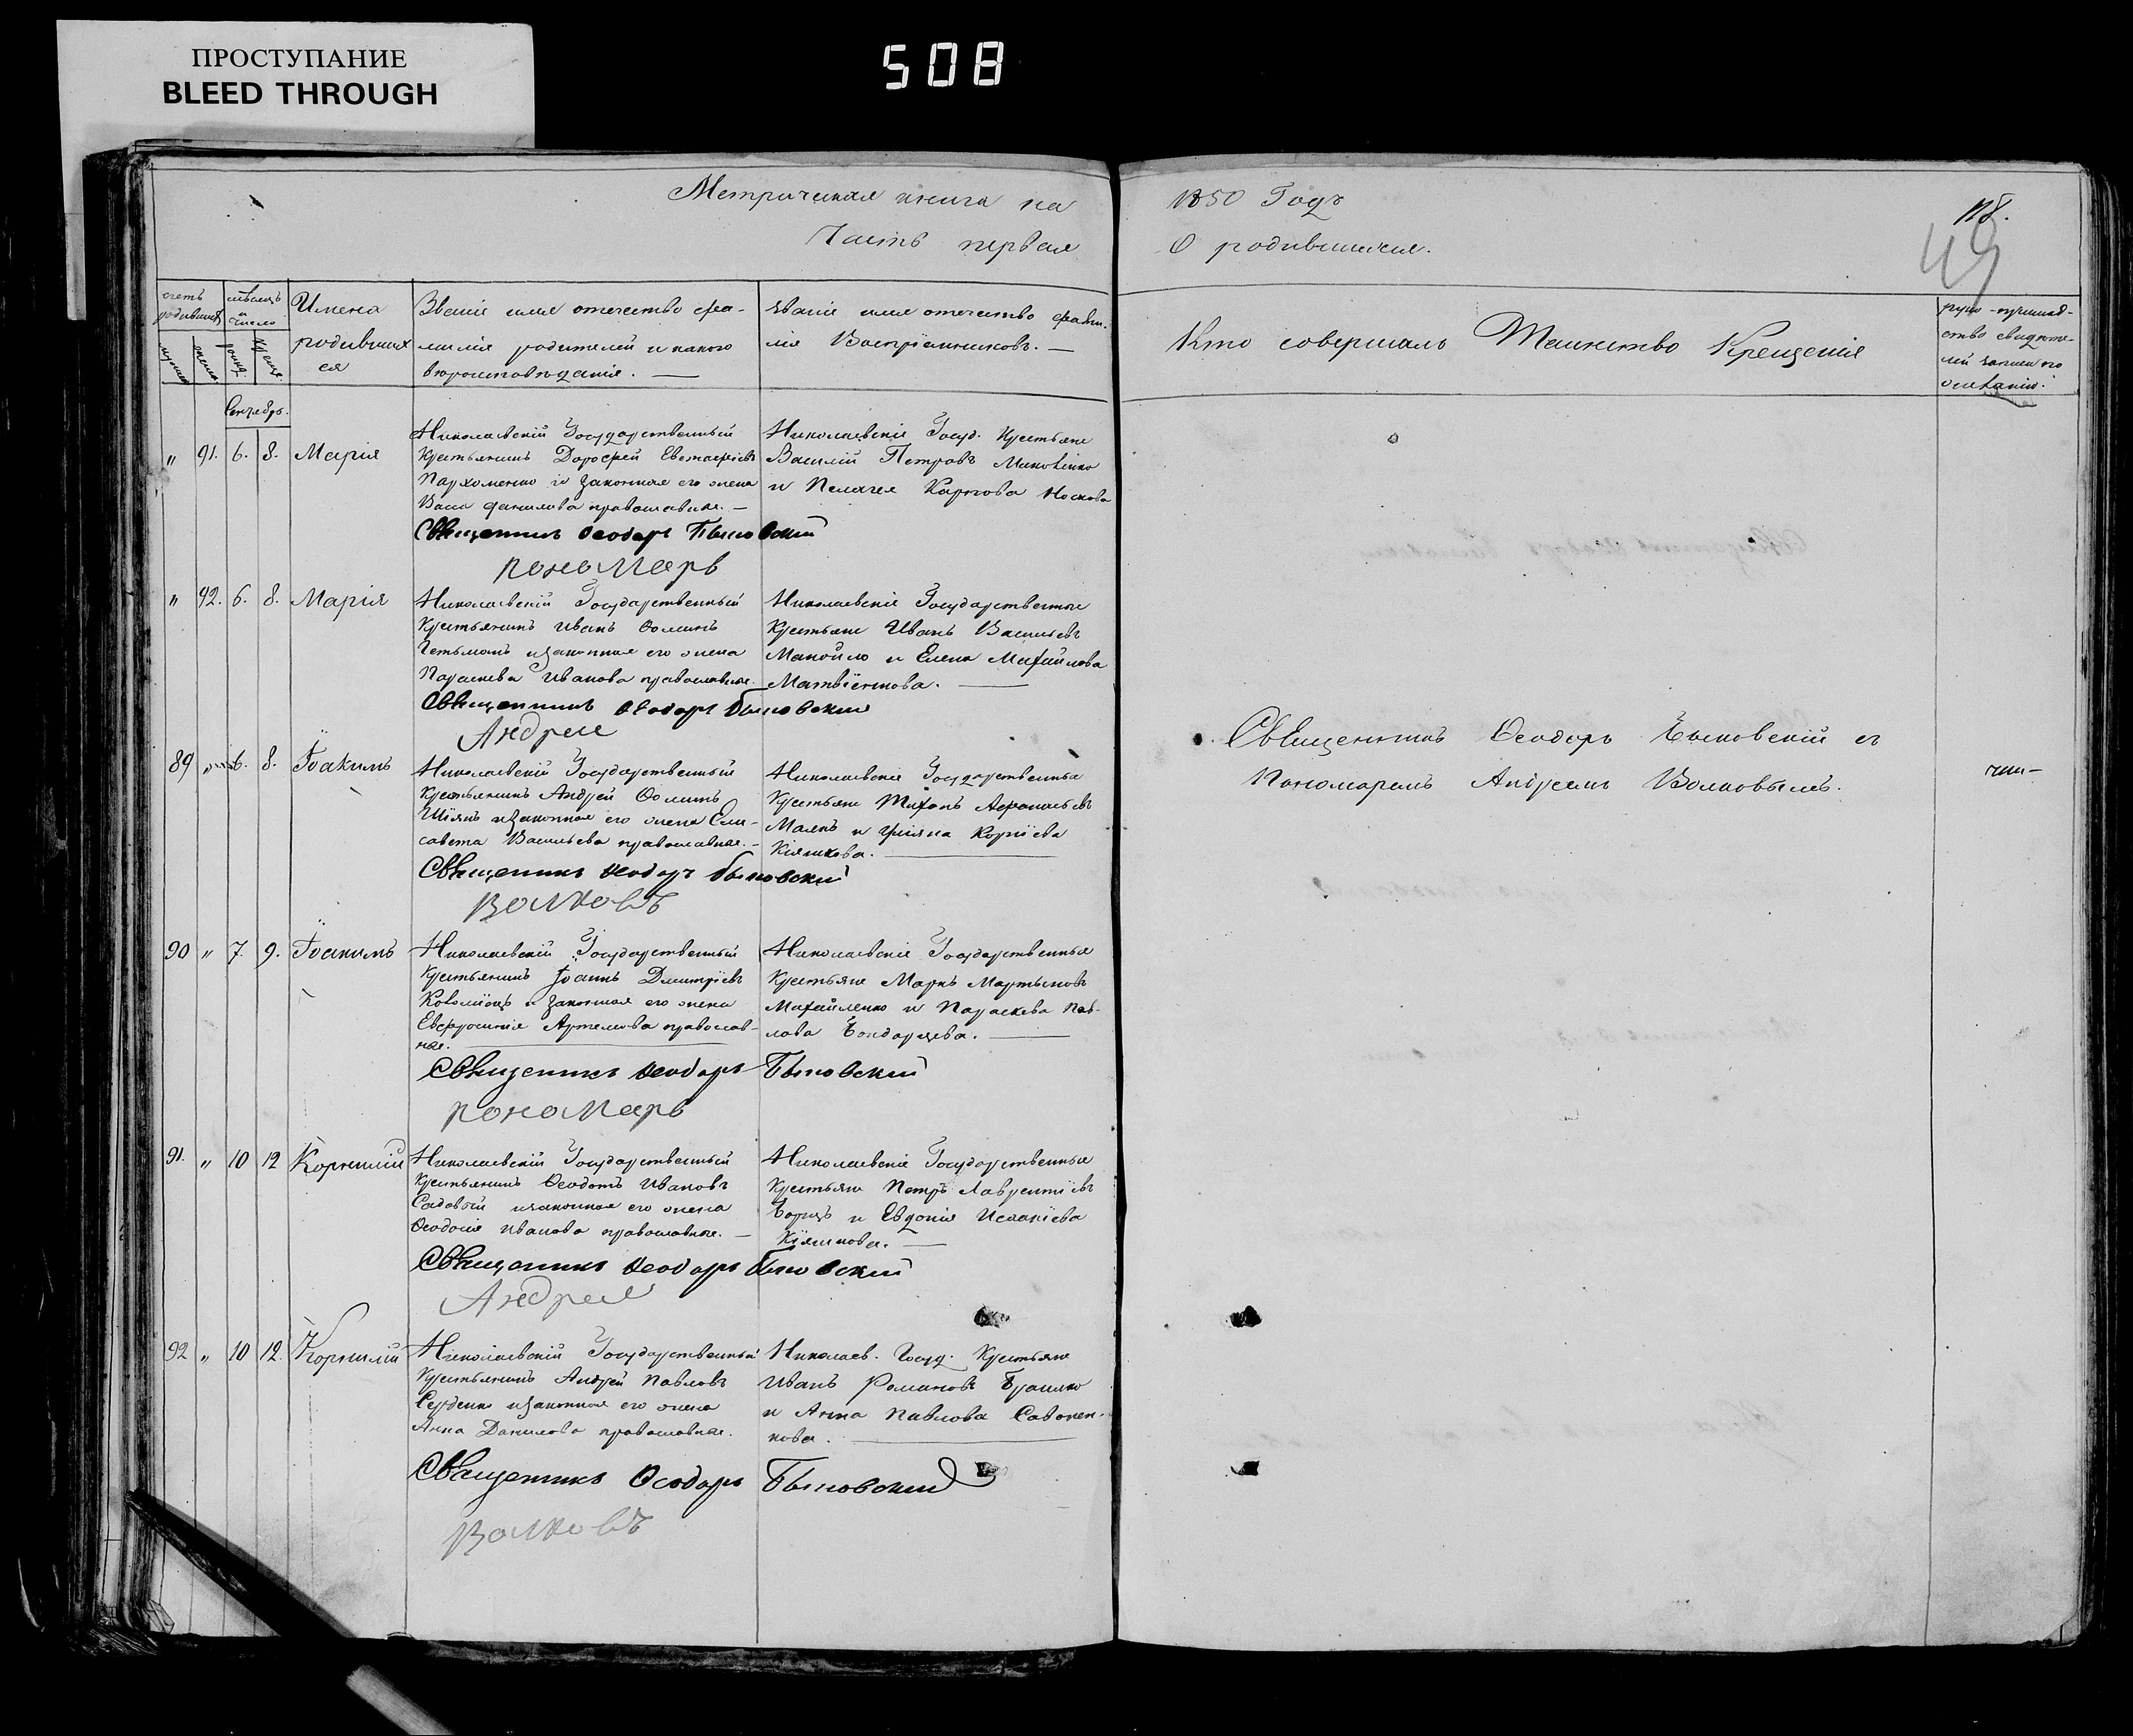 ПРОСТУПАНИЕ
BLEED THROUGH
508
Метрическая книга на 1850 Годъ
Часть первая О родившихся.
118.
49
счетъ родившихся
мѣсяцъ и число
Имена родившихся
Званіе имя отечество фамилія родителей и какого вѣроисповѣданія.
Званіе имя отечество фамилія Воспріемниковъ.
Кто совершалъ Таинство Крещенія
Сентябрь.
" 91. 6. 8. Марія
Николаевскій Государственный
Крестьянинъ Дорофей Евстафіевъ
Пархоменко и законная его жена
Васса Данилова православные.
Николаевскіе Госуд. Крестьяне
Василій Петровъ
и Пелагея Карпова Носкова
Священникъ Ѳеодоръ Быковский
пономарь
" 92. 6. 8. Марія
Николаевскій Государственный
Крестьянинъ Иванъ Ѳоминъ
Гетьманъ и законная его жена
Параскева Иванова православные.
Николаевскіе Государственные
Крестьяне Иванъ Васильевъ
Манойло и Елена Михайлова
Матвіенкова.
Священникъ Ѳеодоръ Быковский
Андреи
89 " 6. 8. Іоакимъ
Николаевскій Государственный
Крестьянинъ Андрей Ѳоминъ
Шіянъ и законная его жена Ели-
савета Васильева православные.
Николаевскіе Государственные
Крестьяне Тихонъ Афанасьевъ
Малякъ и Уліяна Корніева
Кіяшкова.
Священникъ Ѳеодоръ Быковский
Волковъ
Священникъ Ѳеодоръ Быковскій съ
Пономаремъ Андреемъ Волковымъ.
90 " 7. 9. Іоакимъ
Николаевскій Государственный
Крестьянинъ Іоаннъ Дмитріевъ
Коломіецъ и законная его жена
Евфросинія Артемова православ-
ные.
Николаевскіе Государственные
Крестьяне Маркъ Мартыновъ
Михайленко и Параскева Пав-
лова Бондарцева.
Священникъ Ѳеодоръ Быковский
пономарь
91. " 10 12 Корнилій
Николаевскій Государственный
Крестьянинъ Ѳеодотъ Ивановъ
Садовый и законная его жена
Ѳеодосія Иванова православные.
Николаевскіе Государственные
Крестьяне Петръ Лаврентіевъ
Борецъ и Евдокія Исаакіева
Кіяшкова.
Священникъ Ѳеодоръ Быковский
Андреи
92 " 10 12. Корнилій
Николаевскій Государственный
Крестьянинъ Андрей Павловъ
Серденко и законная его жена
Анна Данилова православные.
Николаев. Госуд. Крестьяне
Иванъ Романовъ Браилко
и Анна Павлова Савонен-
кова.
Священникъ Ѳеодоръ Быковский
Волковъ